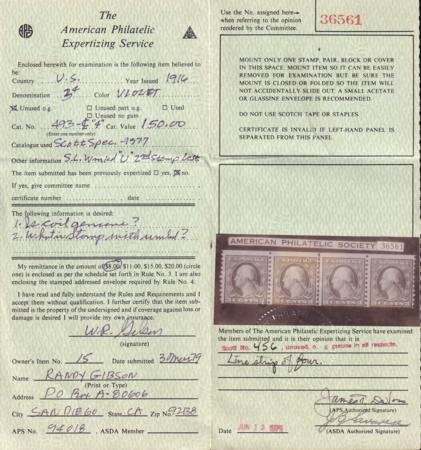 The
American Philatelic
Expertizing Service
APS
Enclosed herewith for examination is the following item believed to
be:
Country U.S. Year Issued 1916
Denomination 3¢ Color VIOLET
Unused o.g. Unused part o.g. Used
Unused no gum
Cat. No. 493 Cat. Value 150.00
Catalogue used Scott Spec. 1977
Other information
The item submitted has been previously expertized yes, no.
If yes, give committee name
certificate number date
The following information is desired:
1. Is coil genuine?
2.
My remittance in the amount of $8.00, $11.00, $15.00, $20.00 (circle
one) is enclosed as per the schedule set forth in Rule No. 3. I am also
enclosing the stamped addressed envelope required by Rule No. 4.
I have read and fully understand the Rules and Requirements and I
accept them without qualification. I further certify that the item sub-
mitted is the property of the undersigned and if coverage against loss or
damage is desired I will provide my own insurance.
W.R. Gibson
(signature)
Owner's Item No. 15 Date submitted
Name RANDY GIBSON
(Print or Type)
Address PO Box A-80606
City SAN DIEGO State CA Zip No. 92138
APS No. 94018 ASDA Member
Use the No. assigned here
when referring to the opinion
rendered by the Committee.
36561
MOUNT ONLY ONE STAMP, PAIR, BLOCK OR COVER
IN THIS SPACE. MOUNT ITEM SO IT CAN BE EASILY
REMOVED FOR EXAMINATION BUT BE SURE THE
MOUNT IS CLOSED OR FOLDED SO THE ITEM WILL
NOT ACCIDENTALLY SLIDE OUT. A SMALL ACETATE
OR GLASSINE ENVELOPE IS RECOMMENDED.
DO NOT USE SCOTCH TAPE OR STAPLES.
CERTIFICATE IS INVALID IF LEFT-HAND PANEL IS
SEPARATED FROM THIS PANEL.
AMERICAN PHILATELIC SOCIETY 36561
Members of The American Philatelic Expertizing Service have examined
the item submitted and it is their opinion that it is
Scott No. 456, unused, o. g. genuine in all respects.
Line strip of four.
(APS Authorized Signature)
(ASDA Authorized Signature)
Date JUN 13